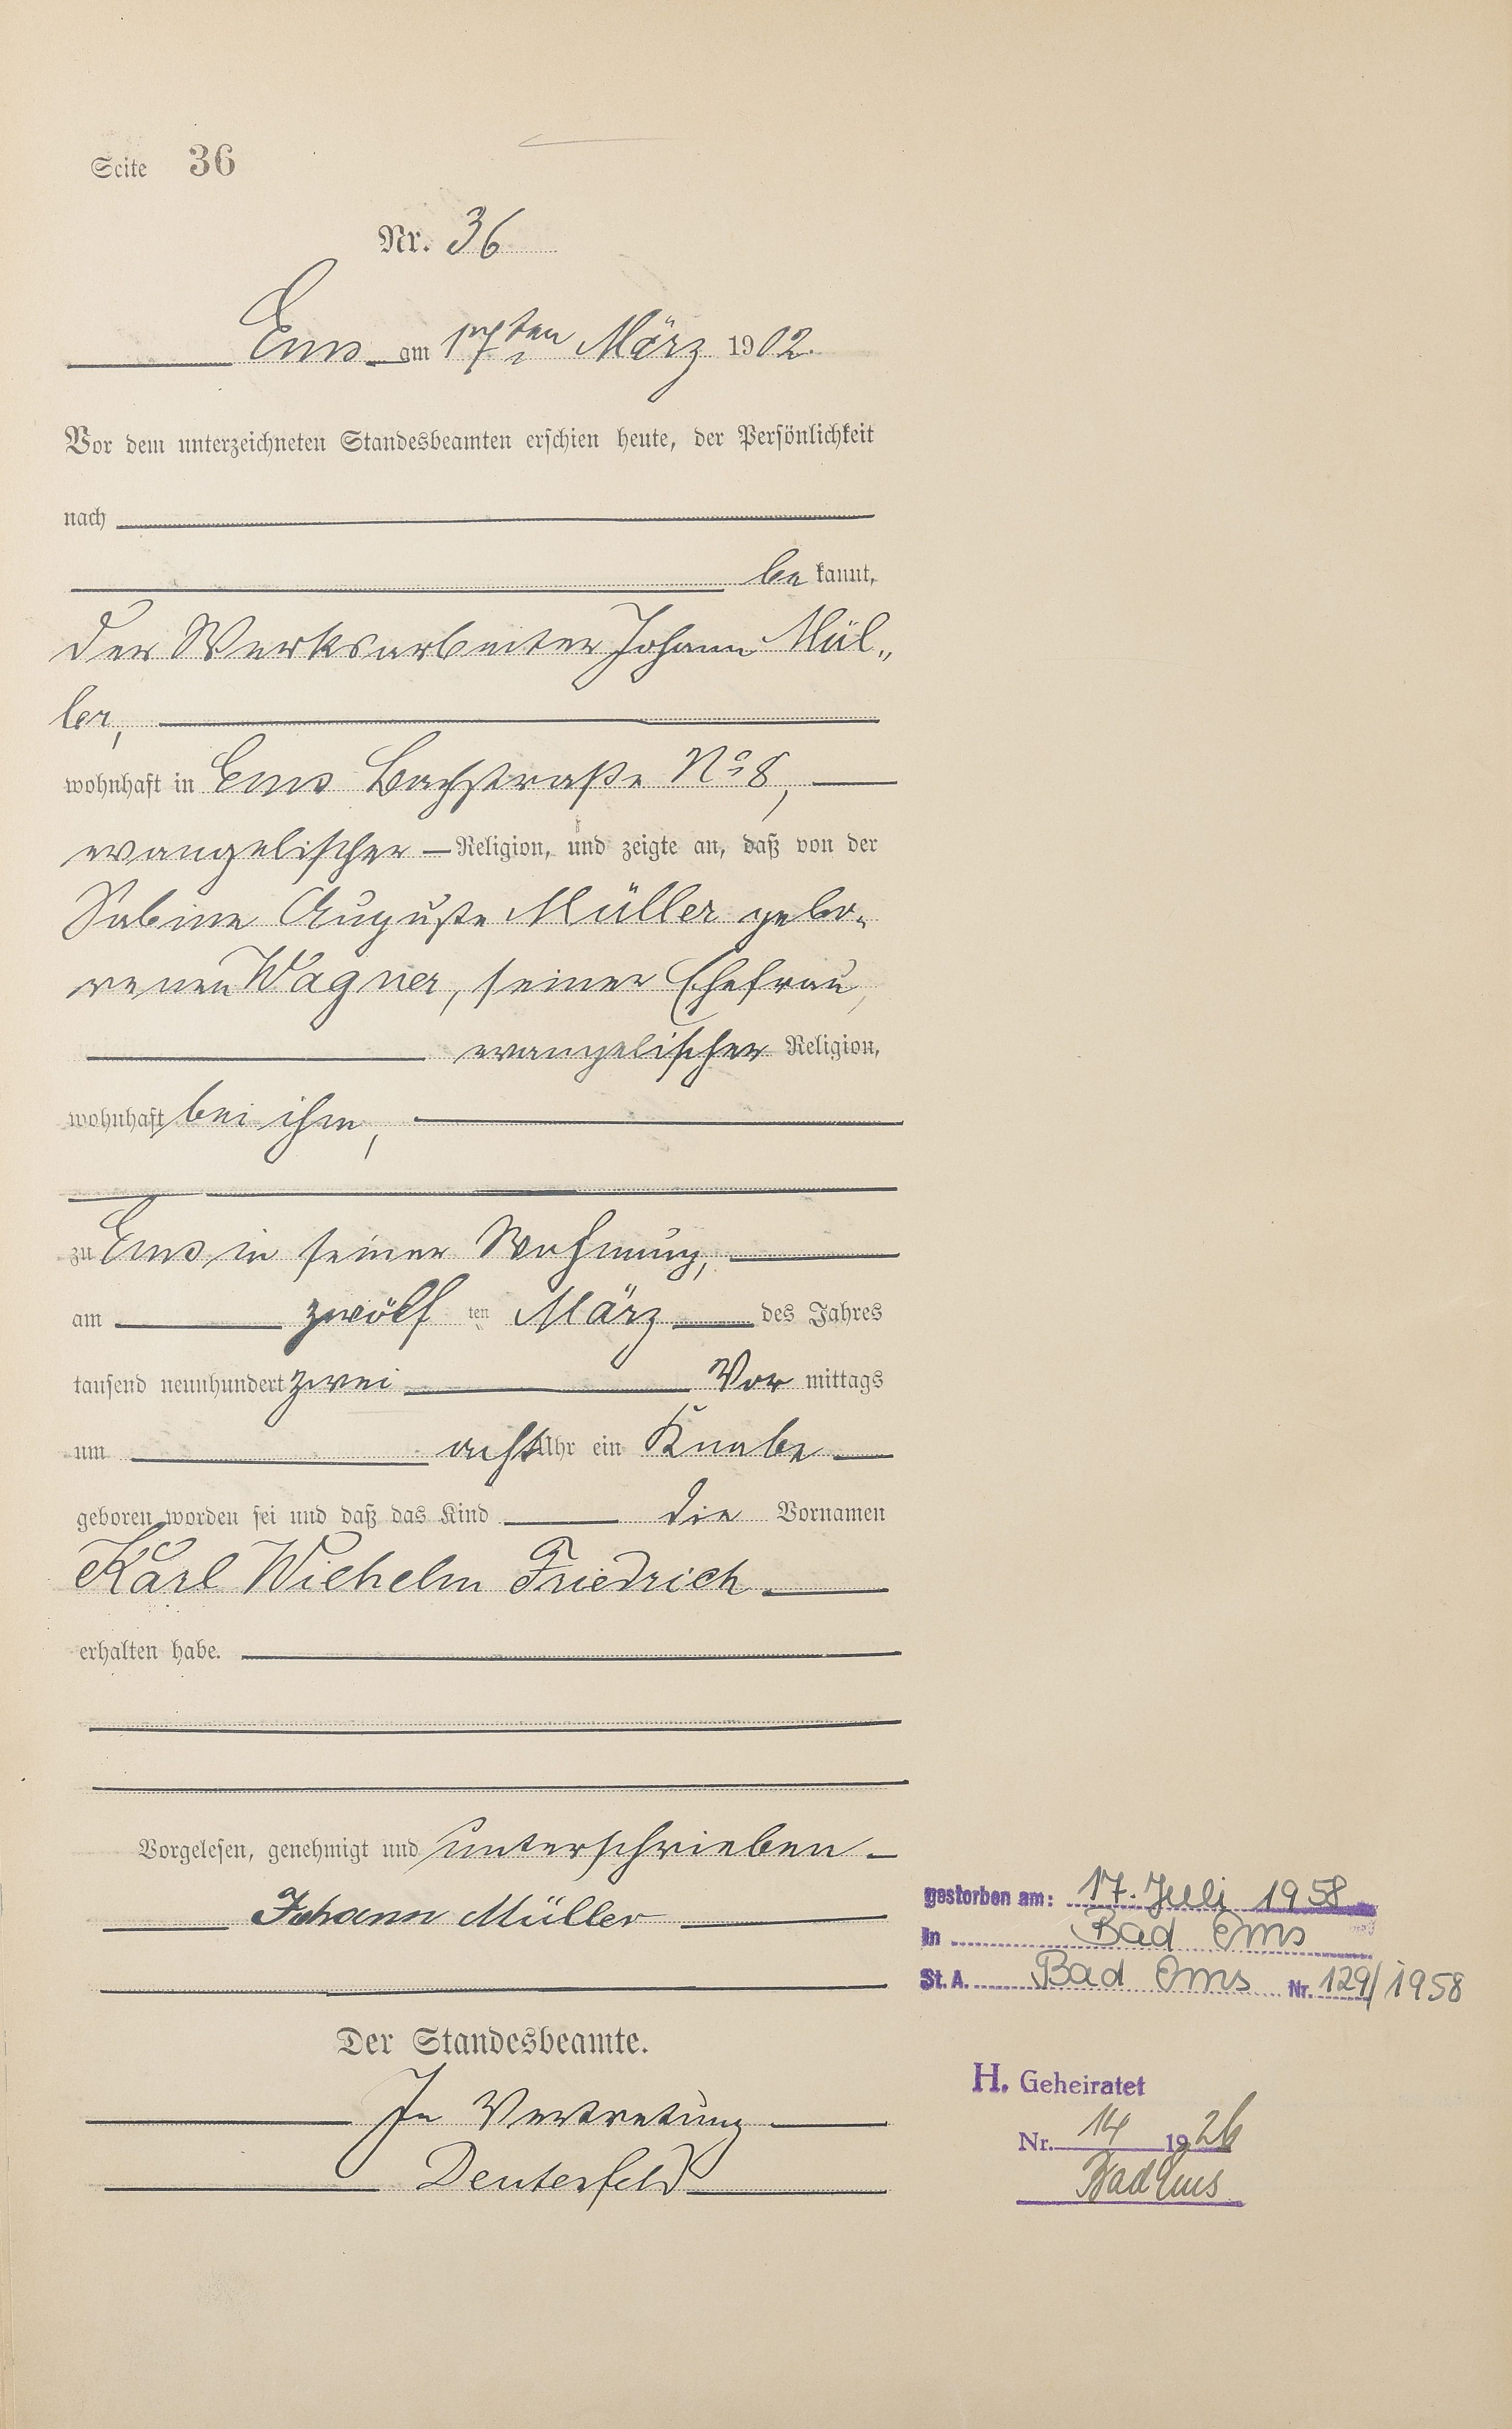 Seite 36
Nr. 36
Ems am 17ten März 1902.
Vor dem unterzeichneten Standesbeamten erschien heute, der Persönlichkeit
nach
be kannt,
der Werksarbeiter Johann Mül„
ler,
wohnhaft in Ems Bachstraße No 8,
evangelischer Religion, und zeigte an, daß von der
Sabine Auguste Müller gebo-
renen Wagner, seiner Ehefrau,
evangelischer Religion,
wohnhaft bei ihm,
zu Ems in seiner Wohnung,
am zwölf ten März des Jahres
tausend neunhundert zwei Vor mittags
um acht Uhr ein Knabe
geboren worden sei und daß das Kind die Vornamen
Karl Wilhelm Friedrich
erhalten habe.
Vorgelesen, genehmigt und unterschrieben
Johann Müller
gestorben am: 17. Juli 1958
in Bad Ems
St. A. Bad Ems Nr. 129/1958
Der Standesbeamte.
In Vertretung
Deuterfeld
H. Geheiratet
Nr. 14 1926
Bad Ems